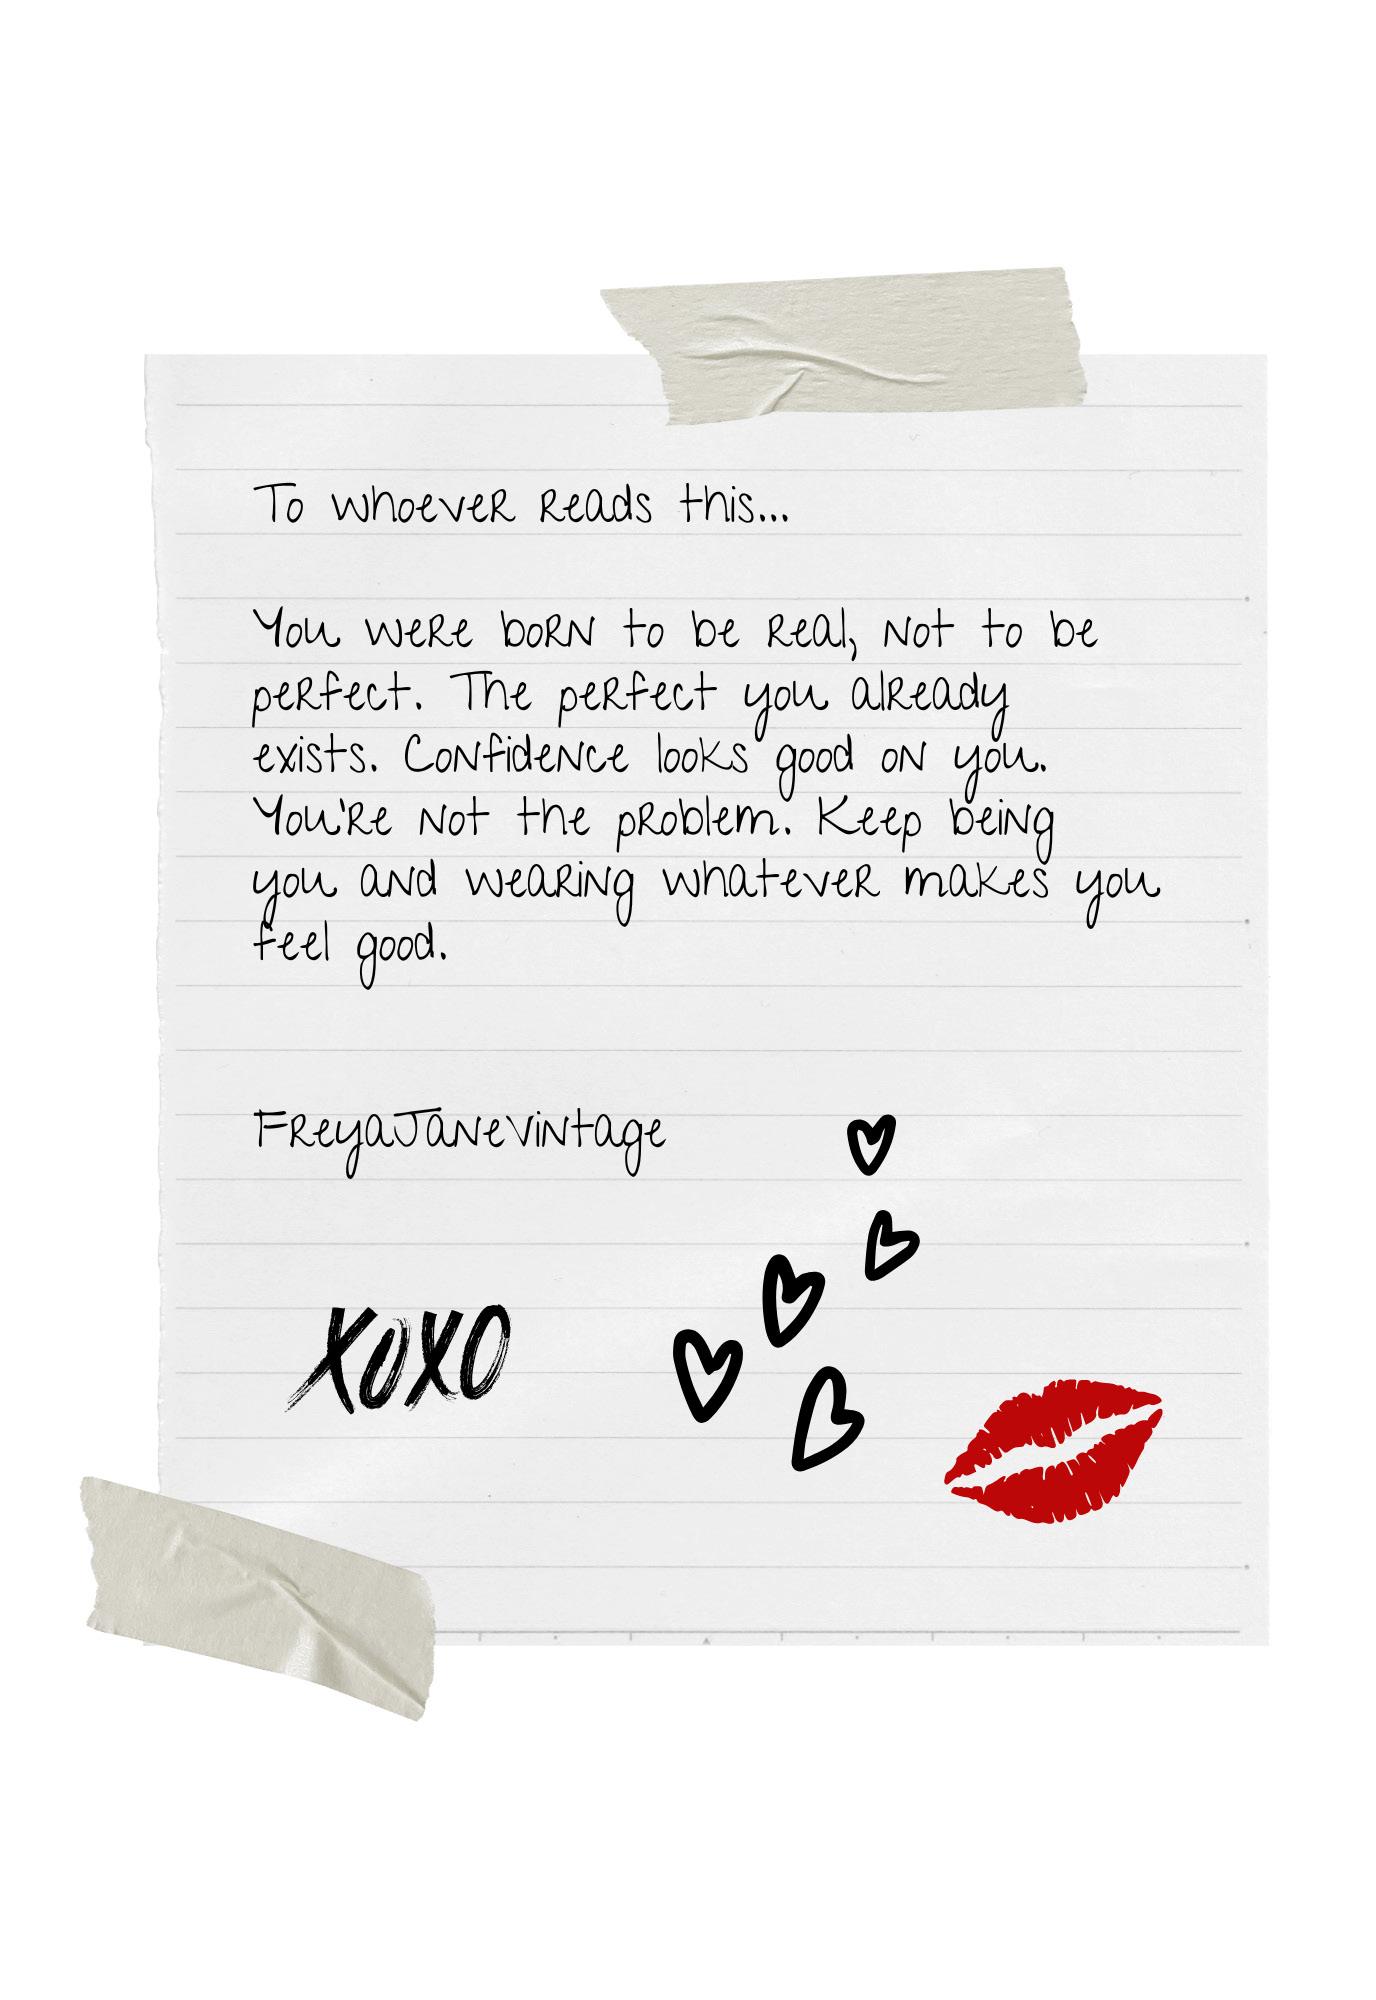 To whoever reads this...
You were born to be real, not to be
perfect. The perfect you already
exists. Confidence looks good on you.
You're not the problem. Keep being
you and wearing whatever makes you
feel good.
FreyaJaneVintage
XOXO